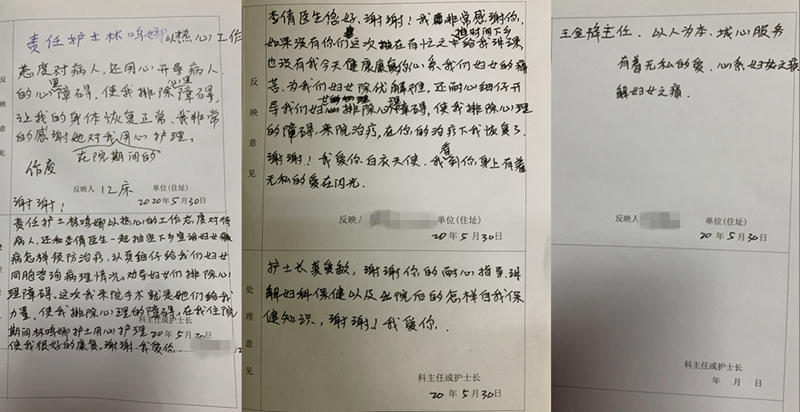 责任护士林鸣娜以热心工作
态度对病人,还用心开导病人
的心里障碍,使我排除心里障碍,
让我的身体恢复正常,我非常
的感谢她对我用心护理。
在院期间的
作废
反映意见
反映人 12床 单位(住址)
2020年5月30日
谢谢!
责任护士林鸣娜以热心的工作态度对待
病人,还和李倩医生一起抽空下乡宣讲妇女
病怎样预防治疗,认真细仔给我们妇女
同胞咨询病理情况,劝导妇女们排除心
理障碍。这次我来院手术就是她们给我
力量,使我排除心理的障碍,在我住院
期间林鸣娜护士用心护理
科主任或护士长
20年5月30日
使我很好的康复。谢谢,我爱你。
李倩医生您好,谢谢!我非常感谢你,
抽时间下乡
如果没有你们这次抽在百忙之中给我讲课
也没有我今天健康康复,你心系我们妇女的病
苦,为我们妇女院优解难,还耐心细仔开
导我们妇女心理障碍,使我排除心理
的障碍,来院治疗,在你的治疗下我恢复了
谢谢!我爱你白衣天使,我看到你身上有着
无私的爱在闪光.
反映意见
反映人 单位(住址)
20年5月30日
护士长 爱敏:谢谢你的耐心指导,讲
解妇科保健以及出院后的怎样自我保
健知识,谢谢!我爱你.
处理意见
科主任或护士长
20年5月30日
王金辉主任,以人为本,诚心服务
有着无私的爱,心系妇女之疾
解妇女之痛.
反映人 单位(住址)
20年5月30日
科主任或护士长
年 月 日